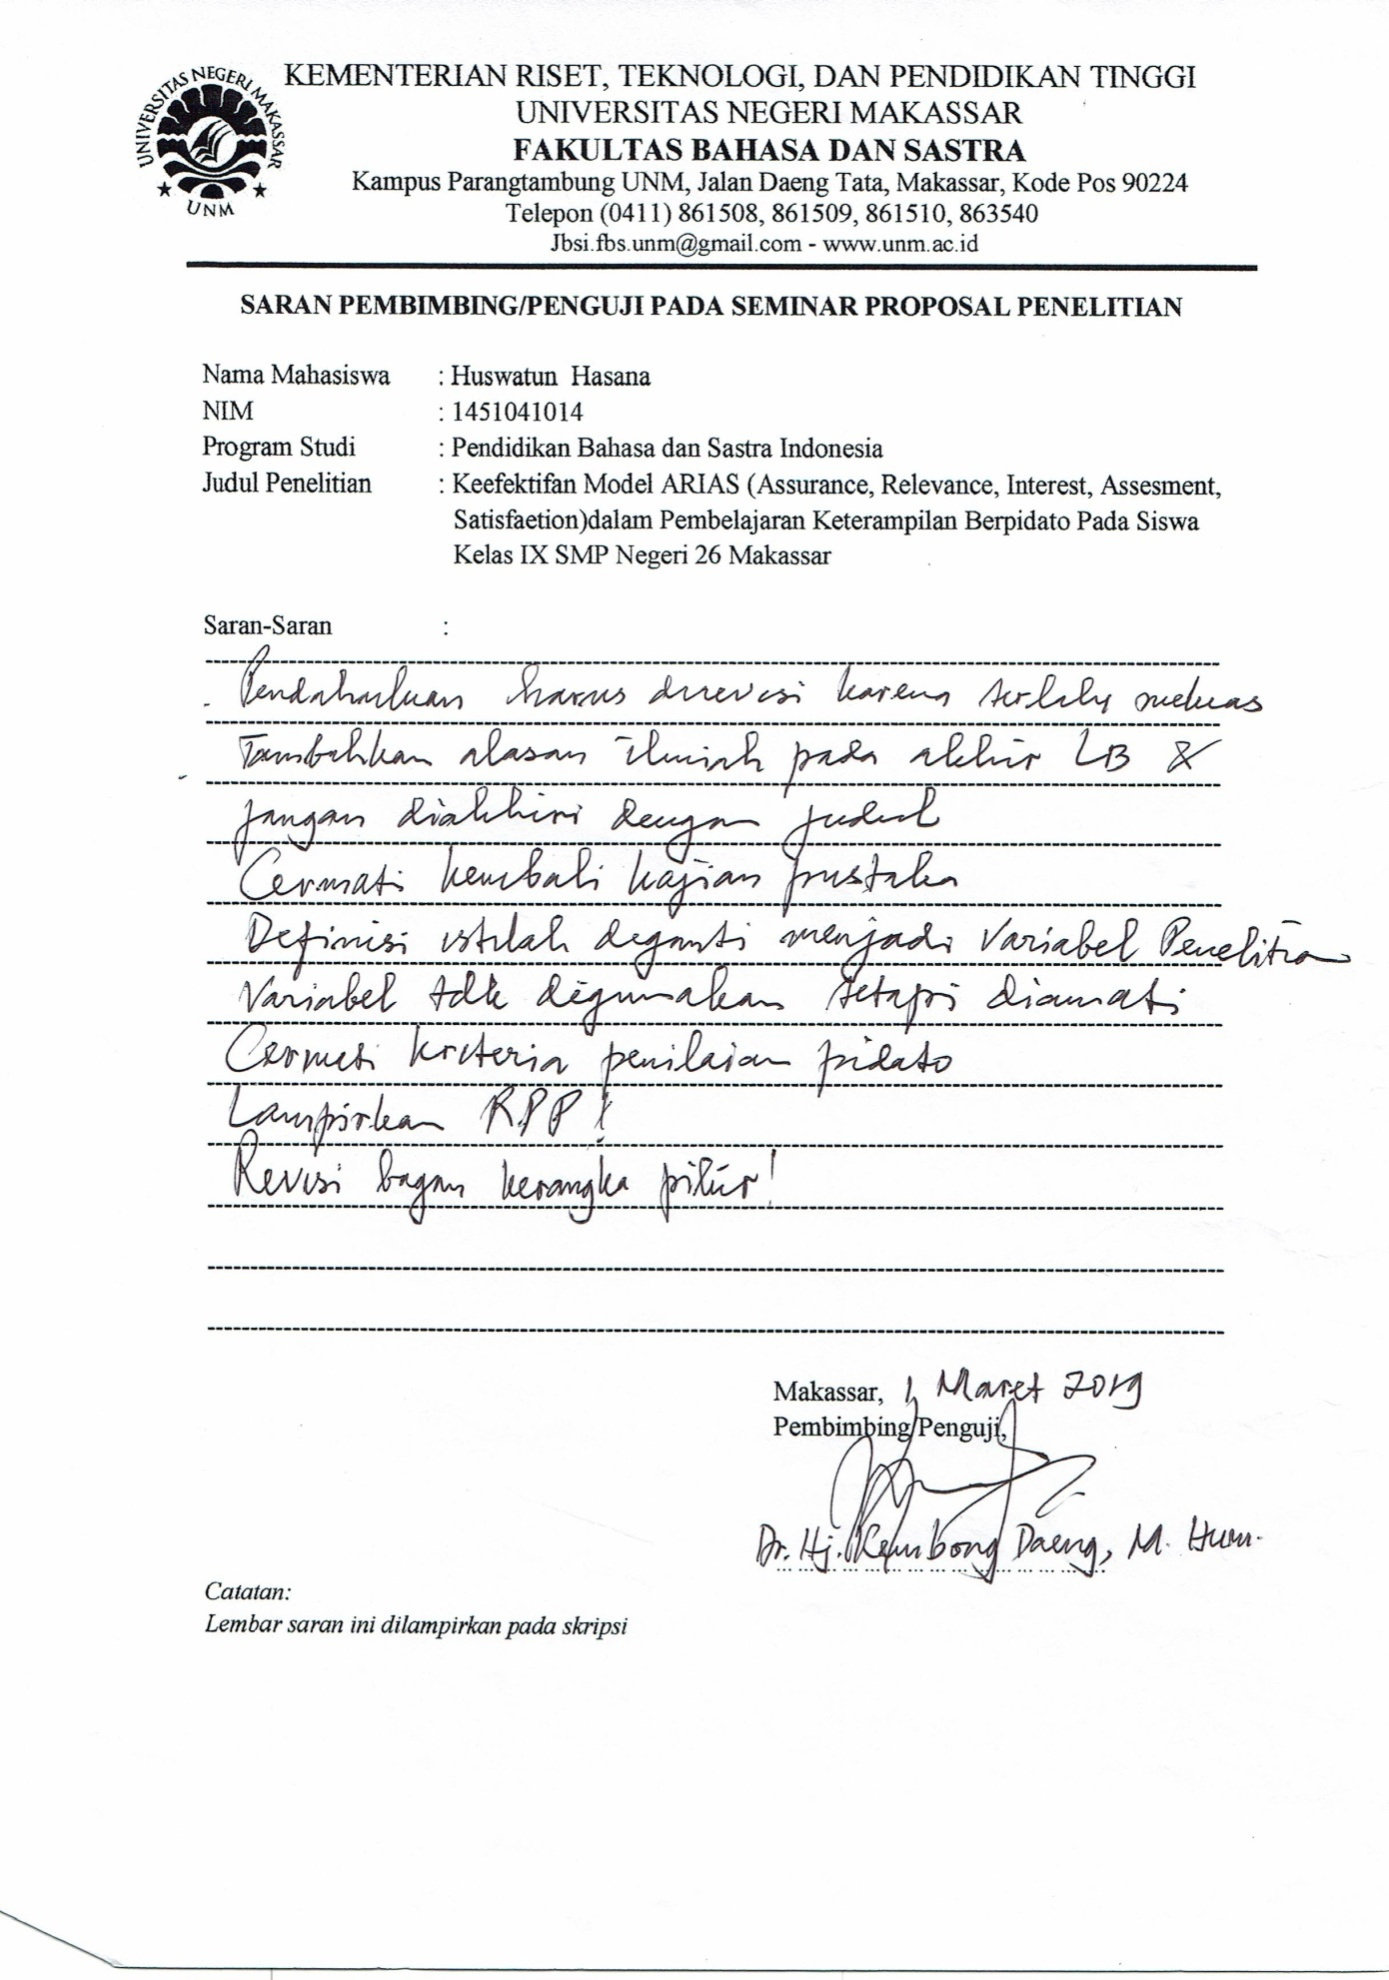 UNIVERSITAS NEGERI MAKASSAR
UNM
KEMENTERIAN RISET, TEKNOLOGI, DAN PENDIDIKAN TINGGI
UNIVERSITAS NEGERI MAKASSAR
FAKULTAS BAHASA DAN SASTRA
Kampus Parangtambung UNM, Jalan Daeng Tata, Makassar, Kode Pos 90224
Telepon (0411) 861508, 861509, 861510, 863540
Jbsi.fbs.unm@gmail.com - www.unm.ac.id
SARAN PEMBIMBING/PENGUJI PADA SEMINAR PROPOSAL PENELITIAN
Nama Mahasiswa : Huswatun Hasana
NIM : 1451041014
Program Studi : Pendidikan Bahasa dan Sastra Indonesia
Judul Penelitian : Keefektifan Model ARIAS (Assurance, Relevance, Interest, Assesment,
Satisfaetion)dalam Pembelajaran Keterampilan Berpidato Pada Siswa
Kelas IX SMP Negeri 26 Makassar
Saran-Saran :
Pendahuluan harus direvisi karena terlalu meluas
Tambahkan alasan ilmiah pada akhir LB &
jangan diakhiri dengan judul
Cermati kembali kajian pustaka
Definisi istilah diganti menjadi Variabel Penelitian
Variabel tdk digunakan tetapi diamati
Cermati kriteria penilaian pidato
Lampirkan RPP!
Revisi bagan kerangka pikir!
Makassar, 1 Maret 2019
Pembimbing/Penguji,
Dr. Hj. Kembong Daeng, M. Hum.
Catatan:
Lembar saran ini dilampirkan pada skripsi